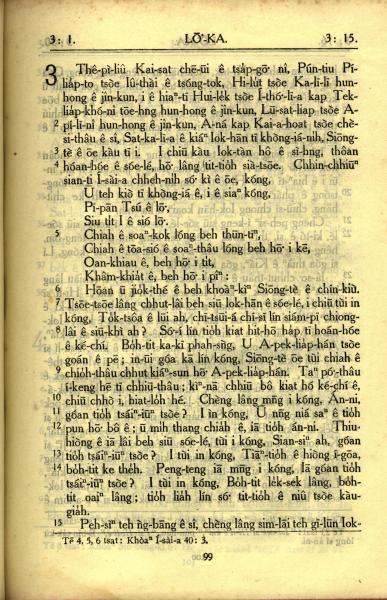 3: 1. LŌ͘-KA. 3: 15.
3 Thê-pì-liû Kai-sat chē-ūi ê tsa̍p-gō͘ nî, Pún-tiu Pí-
lia̍p-to tsòe Iû-thài ê tsóng-tok, Hi-lu̍t tsòe Ka-lī-lī hun-
hong ê jîn-kun, i ê hiaⁿ-tī Hui-le̍k tsòe Í-thó͘-lī-a kap Tek-
lia̍p-khó-nî tōe-hng hun-hong ê jîn-kun, Lū-sat-liap tsòe A-
2 pí-lī-nî hun-hong ê jîn-kun, A-ná kap Kai-a-hoat tsòe chè-
si-thâu ê sî, Sat-ka-lī-a ê kiáⁿ Iok-hān tī khòng-iá-nih, Siōng-
3 tè ê ōe kàu tī i. I chiū kàu Iok-tàn hô ê sì-hng, thoân
4 hóan-hóe ê sóe-lé, hō͘ lâng tit-tio̍h sià-tsōe. Chhin-chhiūⁿ
sian-ti Í-sài-a chheh-nih só͘ kì ê ōe, kóng,
U teh kiò tī khòng-iá ê, i ê siaⁿ kóng,
Pī-pān Tsú ê lō͘,
Siu ti̍t I ê sió lō͘.
5 Chiah ê soaⁿ-kok lóng beh thūn-tīⁿ,
Chiah ê tōa-sió ê soaⁿ-thâu lóng beh hō͘ i kē,
Oan-khiau ê, beh hō͘ i ti̍t,
Khâm-khia̍t ê, beh hō͘ i pîⁿ:
6 Hōan ū jio̍k-thé ê beh khoàⁿ-kìⁿ Siōng-tè ê chín-kiù.
7 Tsōe-tsōe lâng chhut-lâi beh siū Iok-hān ê sóe-lé, i chiū tùi in
kóng, To̍k-tsôa ê lūi ah, chī-tsūi-á chí-sī lín siám-pī chiong-
8 lâi ê siū-khì ah? Só͘-í lín tio̍h kiat hit-hō ha̍p tī hoán-hóe
ê ké-chí. Bo̍h-tit ka-kī phah-sǹg, Ū A-pek-lia̍p-hán tsòe
goán ê pē; in-ūi góa kā lín kóng, Siōng-tè ōe tùi chiah ê
9 chio̍h-thâu chhut kiáⁿ-sun hō͘ A-pek-lia̍p-hán. Taⁿ pó͘-thâu
í-keng hē tī chhiū-thâu; kìⁿ-nā chhiū bô kiat hó ké-chí ê,
10 chiū chhò i, hiat-lo̍h hé. Chèng lâng mn̄g i kóng, Án-ni,
11 góan tio̍h tsáiⁿ-iūⁿ tsòe? I ìn kóng, Ū nn̄g niá saⁿ ê tio̍h
12 pun hō͘ bô ê; ū mih thang chia̍h ê, iā tio̍h án-ni. Thiu-
hiòng ê iā lâi beh siū sóe-lé, tùi i kóng, Sian-siⁿ ah, góan
13 tio̍h tsáiⁿ-iūⁿ tsòe? I tùi in kóng, Tiāⁿ-tio̍h ê hiòng í-gōa,
14 bo̍h-tit ke the̍h. Peng-teng iā mn̄g i kóng, Iā góan tio̍h
tsáiⁿ-iūⁿ tsòe? I tùi in kóng, Bo̍h-tit le̍k-sek lâng, bo̍h-
tit oaiⁿ lâng; tio̍h lia̍h lín só͘ tit-tio̍h ê niû tsòe kàu-
gia̍h.
15 Peh-sìⁿ teh ǹg-bāng ê sî, chèng lâng sim-lāi teh gī-lūn Iok-
Tē 4, 5, 6 tsat: Khòaⁿ Í-sài-a 40: 3.
99